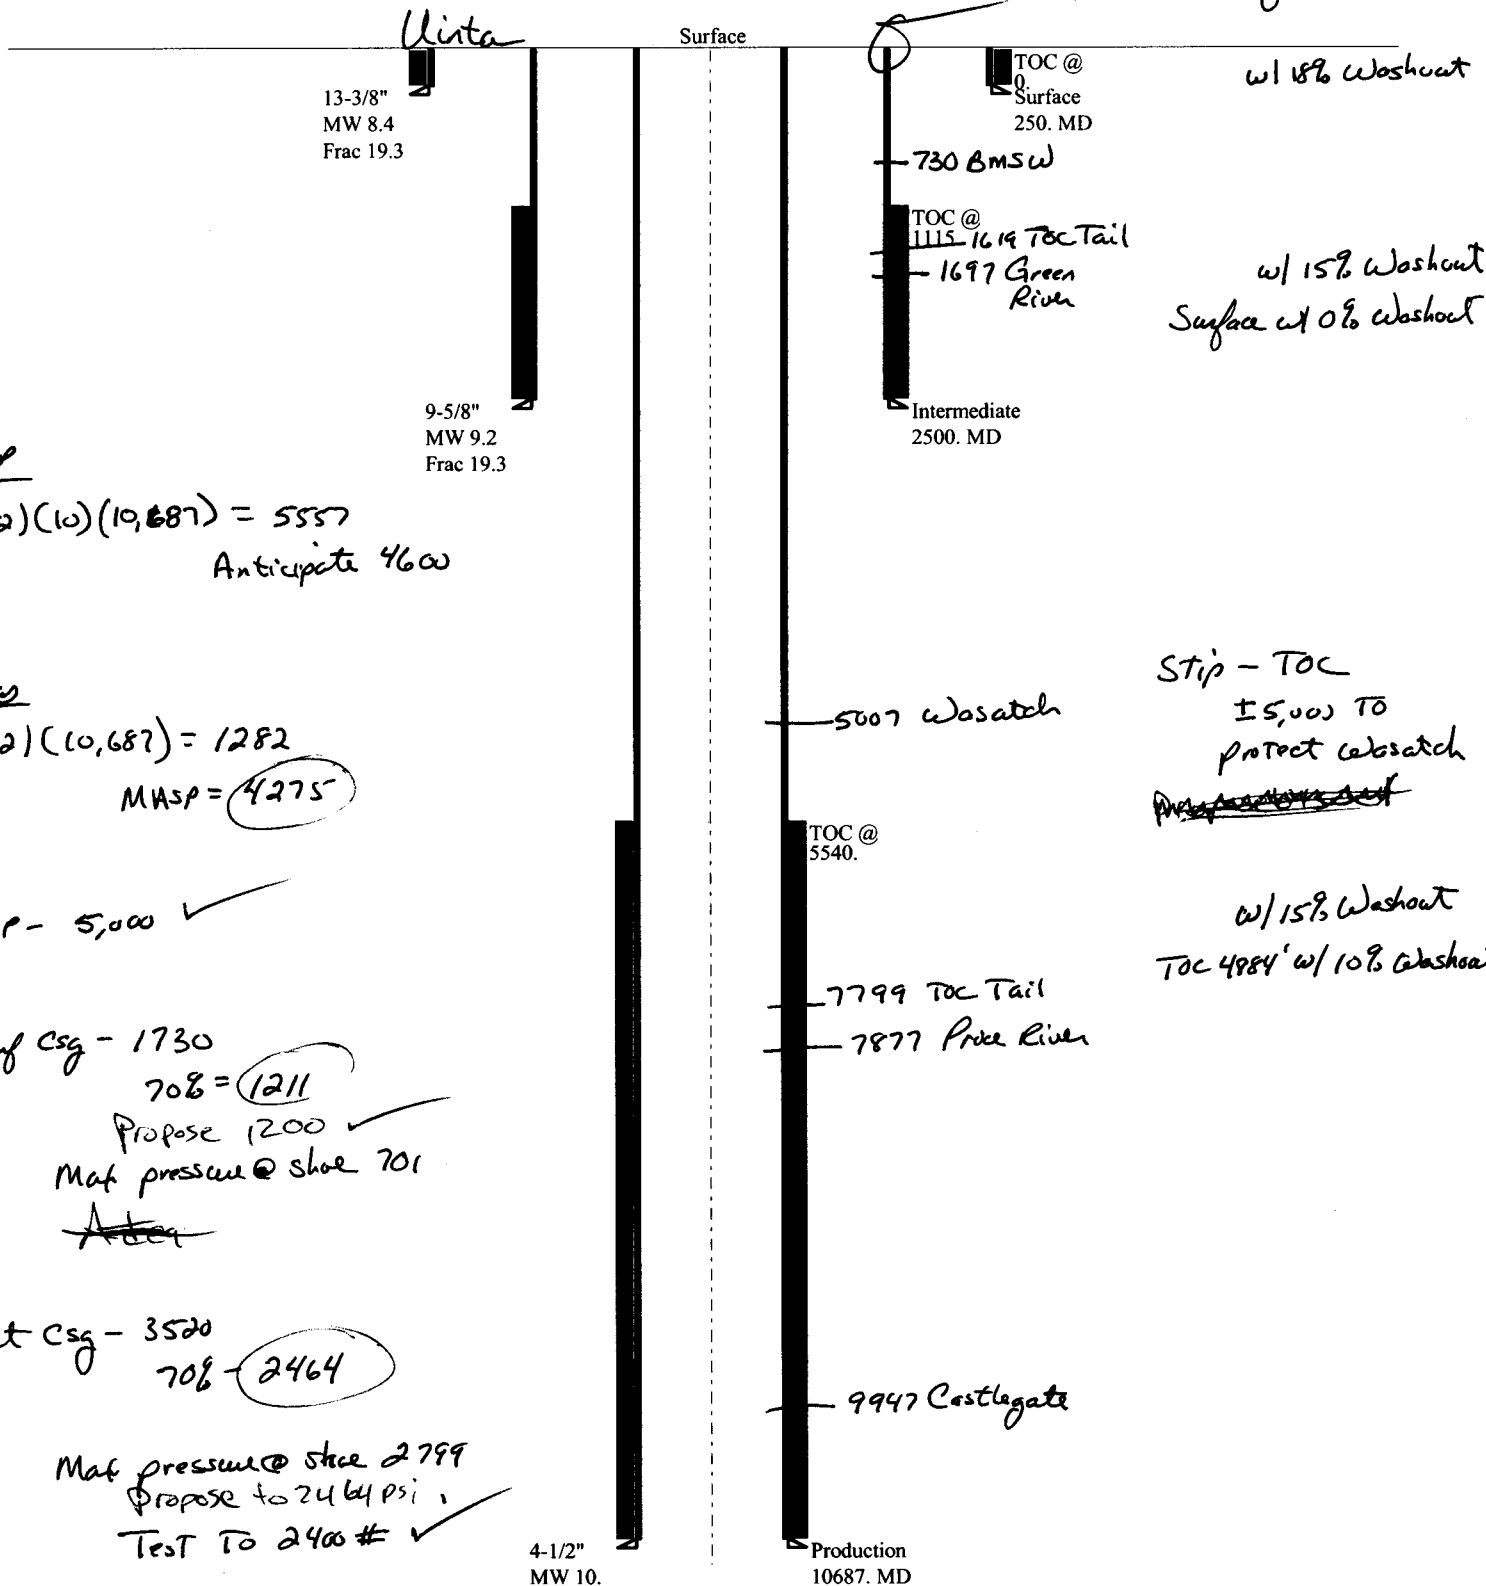 Uinta
Surface
13-3/8"
MW 8.4
Frac 19.3
TOC @
0.
Surface
250. MD
w/ 18% Washout
730 BMSW
TOC @
1115. 1619 TOC Tail
1697 Green
River
w/ 15% Washout
Surface w/ 0% Washout
9-5/8"
MW 9.2
Frac 19.3
Intermediate
2500. MD
2)(10)(10,687) = 5557
Anticipate 4600
Stip - TOC
±5,000 To
protect Wasatch
5007 Wasatch
2)(10,687) = 1282
MASP = 4275
TOC @
5540.
P - 5,000 ✓
w/ 15% Washout
TOC 4984' w/ 10% Washou
7799 TOC Tail
7877 Price River
f Csg - 1730
70% = 1211
Propose 1200 ✓
Max pressure @ shoe 701
t Csg - 3520
70% - 2464
9947 Castlegate
Max pressure @ shoe 2799
Propose to 2464 psi.
Test To 2400 # ✓
4-1/2"
MW 10.
Production
10687. MD